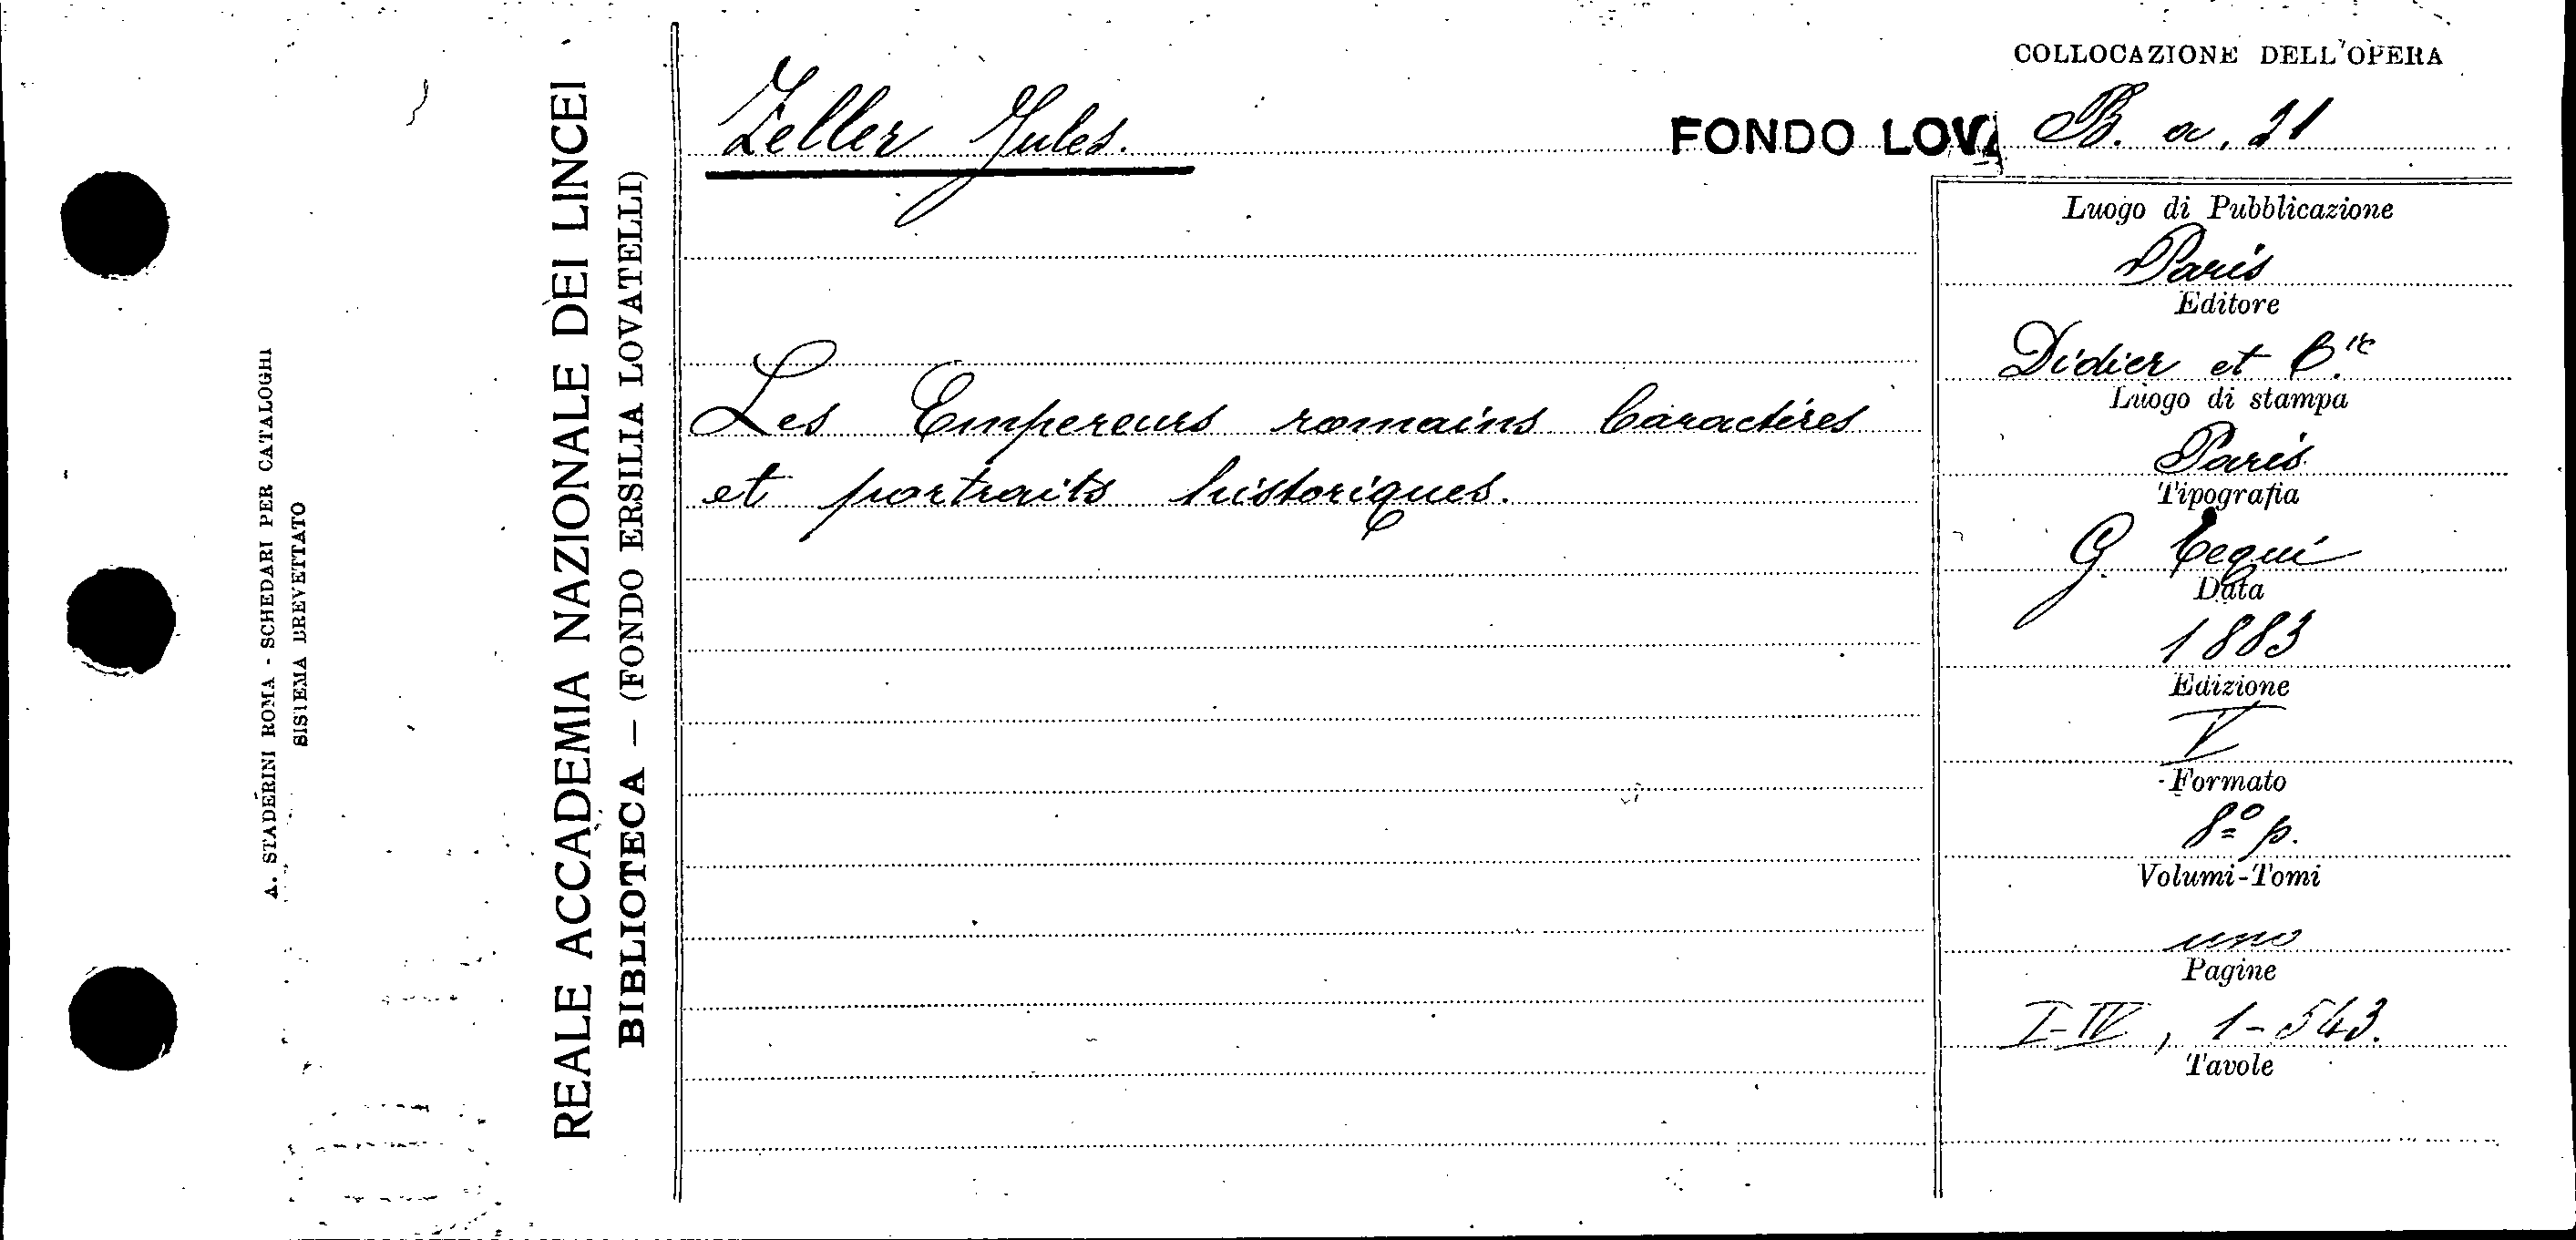 COLLOCAZIONE DELL'OPERA
Zeller Jules.
FONDO LOVA B. a. 21
Les Empereurs romains Caractères
et portraits historiques.
Luogo di Pubblicazione
Paris
Editore
Didier et C.ie
Luogo di stampa
Paris
Tipografia
G. Tequi
Data
1883
Edizione
V
Formato
8º p.
Volumi-Tomi
uno
Pagine
I-IV, 1-543.
Tavole
REALE ACCADEMIA NAZIONALE DEI LINCEI
BIBLIOTECA — (FONDO ERSILIA LOVATELLI)
A. STADERINI ROMA - SCHEDARI PER CATALOGHI
SISTEMA BREVETTATO